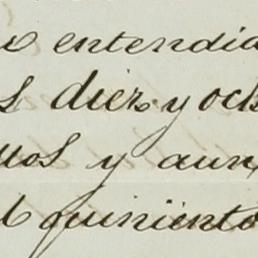 entendia
diez y och
y aun
quiniento